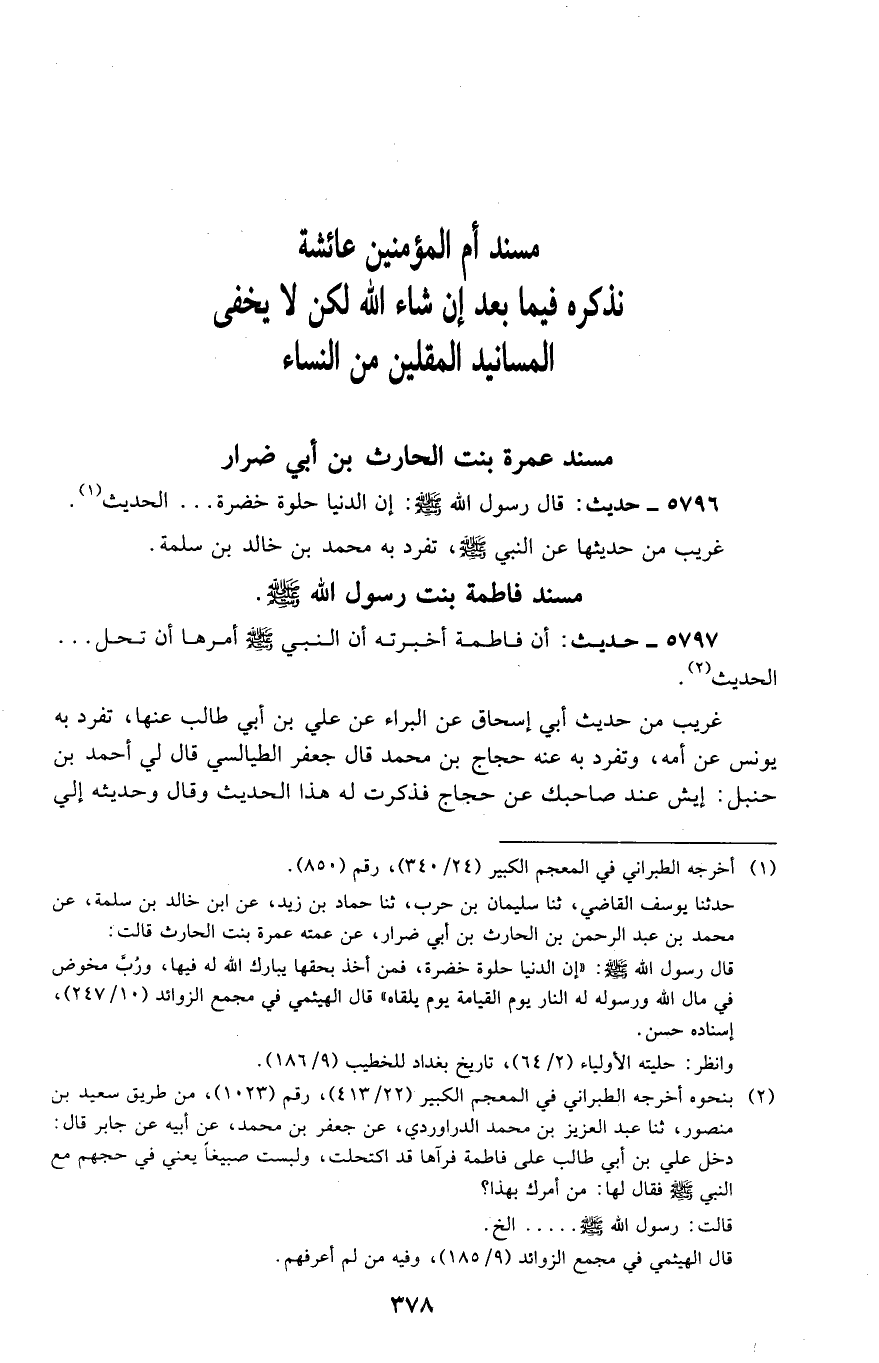 مسند أم المؤمنين عائشة
نذكره فيما بعد إن شاء الله لكن لا يخفى
المسانيد المقلين من النساء
مسند عمرة بنت الحارث بن أبي ضرار
٥٧٩٦ ـ حديث: قال رسول الله ﷺ: إن الدنيا حلوة خضرة... الحديث(١).
غريب من حديثها عن النبي ﷺ، تفرد به محمد بن خالد بن سلمة.
مسند فاطمة بنت رسول الله ﷺ.
٥٧٩٧ ـ حديث: أن فاطمة أخبرته أن النبي ﷺ أمرها أن تحل...
الحديث(٢).
غريب من حديث أبي إسحاق عن البراء عن علي بن أبي طالب عنها، تفرد به
يونس عن أمه، وتفرد به عنه حجاج بن محمد قال جعفر الطيالسي قال لي أحمد بن
حنبل: إيش عند صاحبك عن حجاج فذكرت له هذا الحديث وقال وحديثه إلي
(١) أخرجه الطبراني في المعجم الكبير (٢٤/ ٣٤٠)، رقم (٨٥٠).
حدثنا يوسف القاضي، ثنا سليمان بن حرب، ثنا حماد بن زيد، عن ابن خالد بن سلمة، عن
محمد بن عبد الرحمن بن الحارث بن أبي ضرار، عن عمته عمرة بنت الحارث قالت:
قال رسول الله ﷺ: «إن الدنيا حلوة خضرة، فمن أخذ بحقها يبارك الله له فيها، ورُبَّ مخوض
في مال الله ورسوله له النار يوم القيامة يوم يلقاه» قال الهيثمي في مجمع الزوائد (١٠/ ٢٤٧)،
إسناده حسن.
وانظر: حليته الأولياء (٢/ ٦٤)، تاريخ بغداد للخطيب (٩/ ١٨٦).
(٢) بنحوه أخرجه الطبراني في المعجم الكبير (٢٢/ ٤١٣)، رقم (١٠٢٣)، من طريق سعيد بن
منصور، ثنا عبد العزيز بن محمد الدراوردي، عن جعفر بن محمد، عن أبيه عن جابر قال:
دخل علي بن أبي طالب على فاطمة فرآها قد اكتحلت، ولبست صبيغاً يعني في حجهم مع
النبي ﷺ فقال لها: من أمرك بهذا؟
قالت: رسول الله ﷺ..... الخ.
قال الهيثمي في مجمع الزوائد (٩/ ١٨٥)، وفيه من لم أعرفهم.
٣٧٨